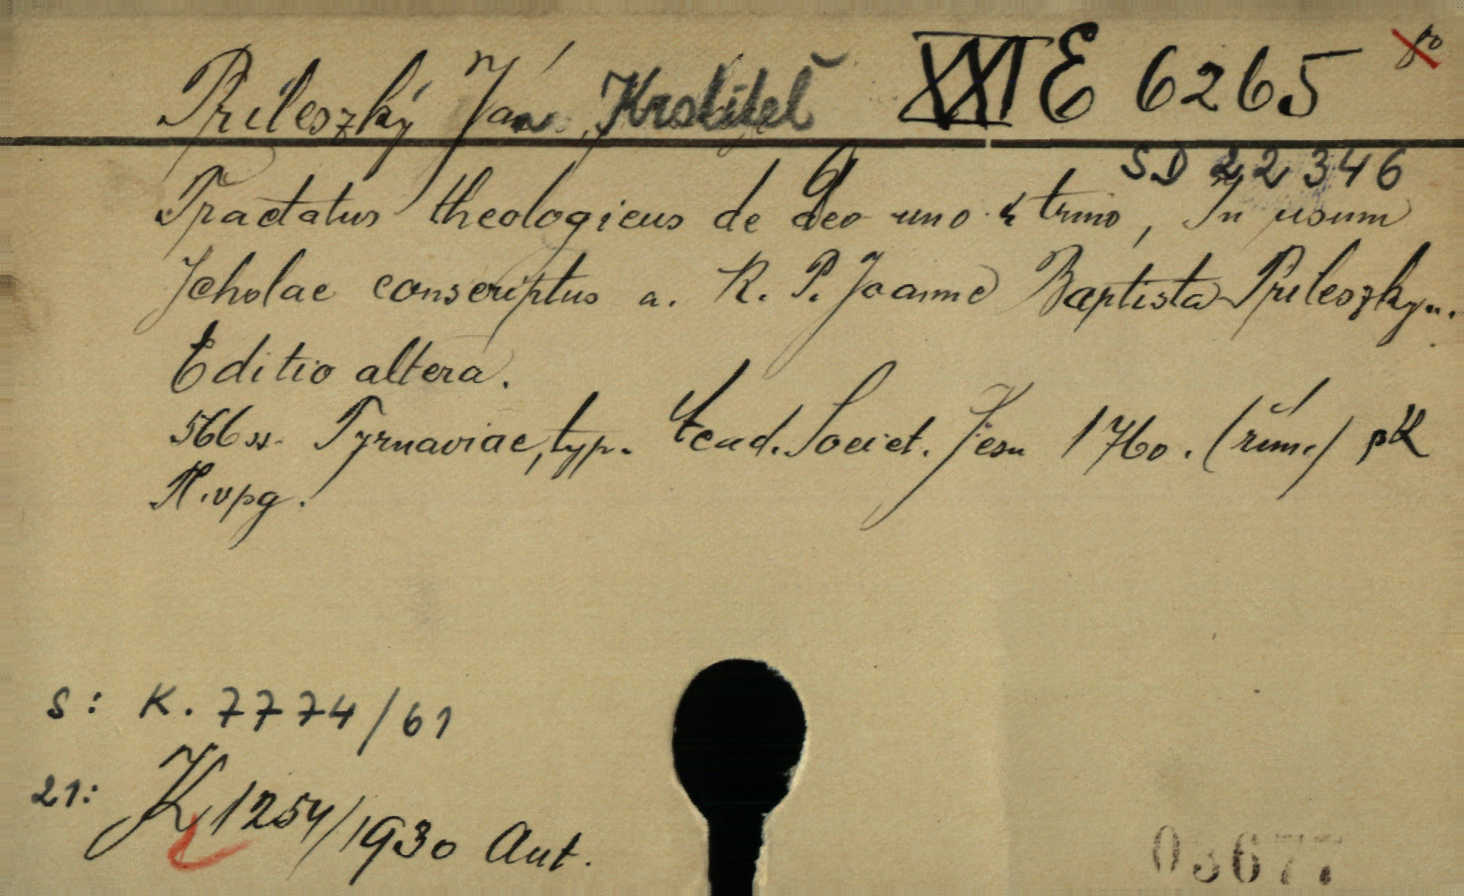 Prileszký Ján Krstiteľ XXI E 6265
SD 22346
Tractatus theologicus de Deo uno & trino, In usum
Scholae conscriptus a. R. P. Joanne Baptista Prileszky...
Editio altera.
566 s. Tyrnaviae, typ. Acad. Societ. Jesu 1760. (rím.) pK
N. vpg.
S: K. 7774/61
21: K 1254/1930 Aut.
03677